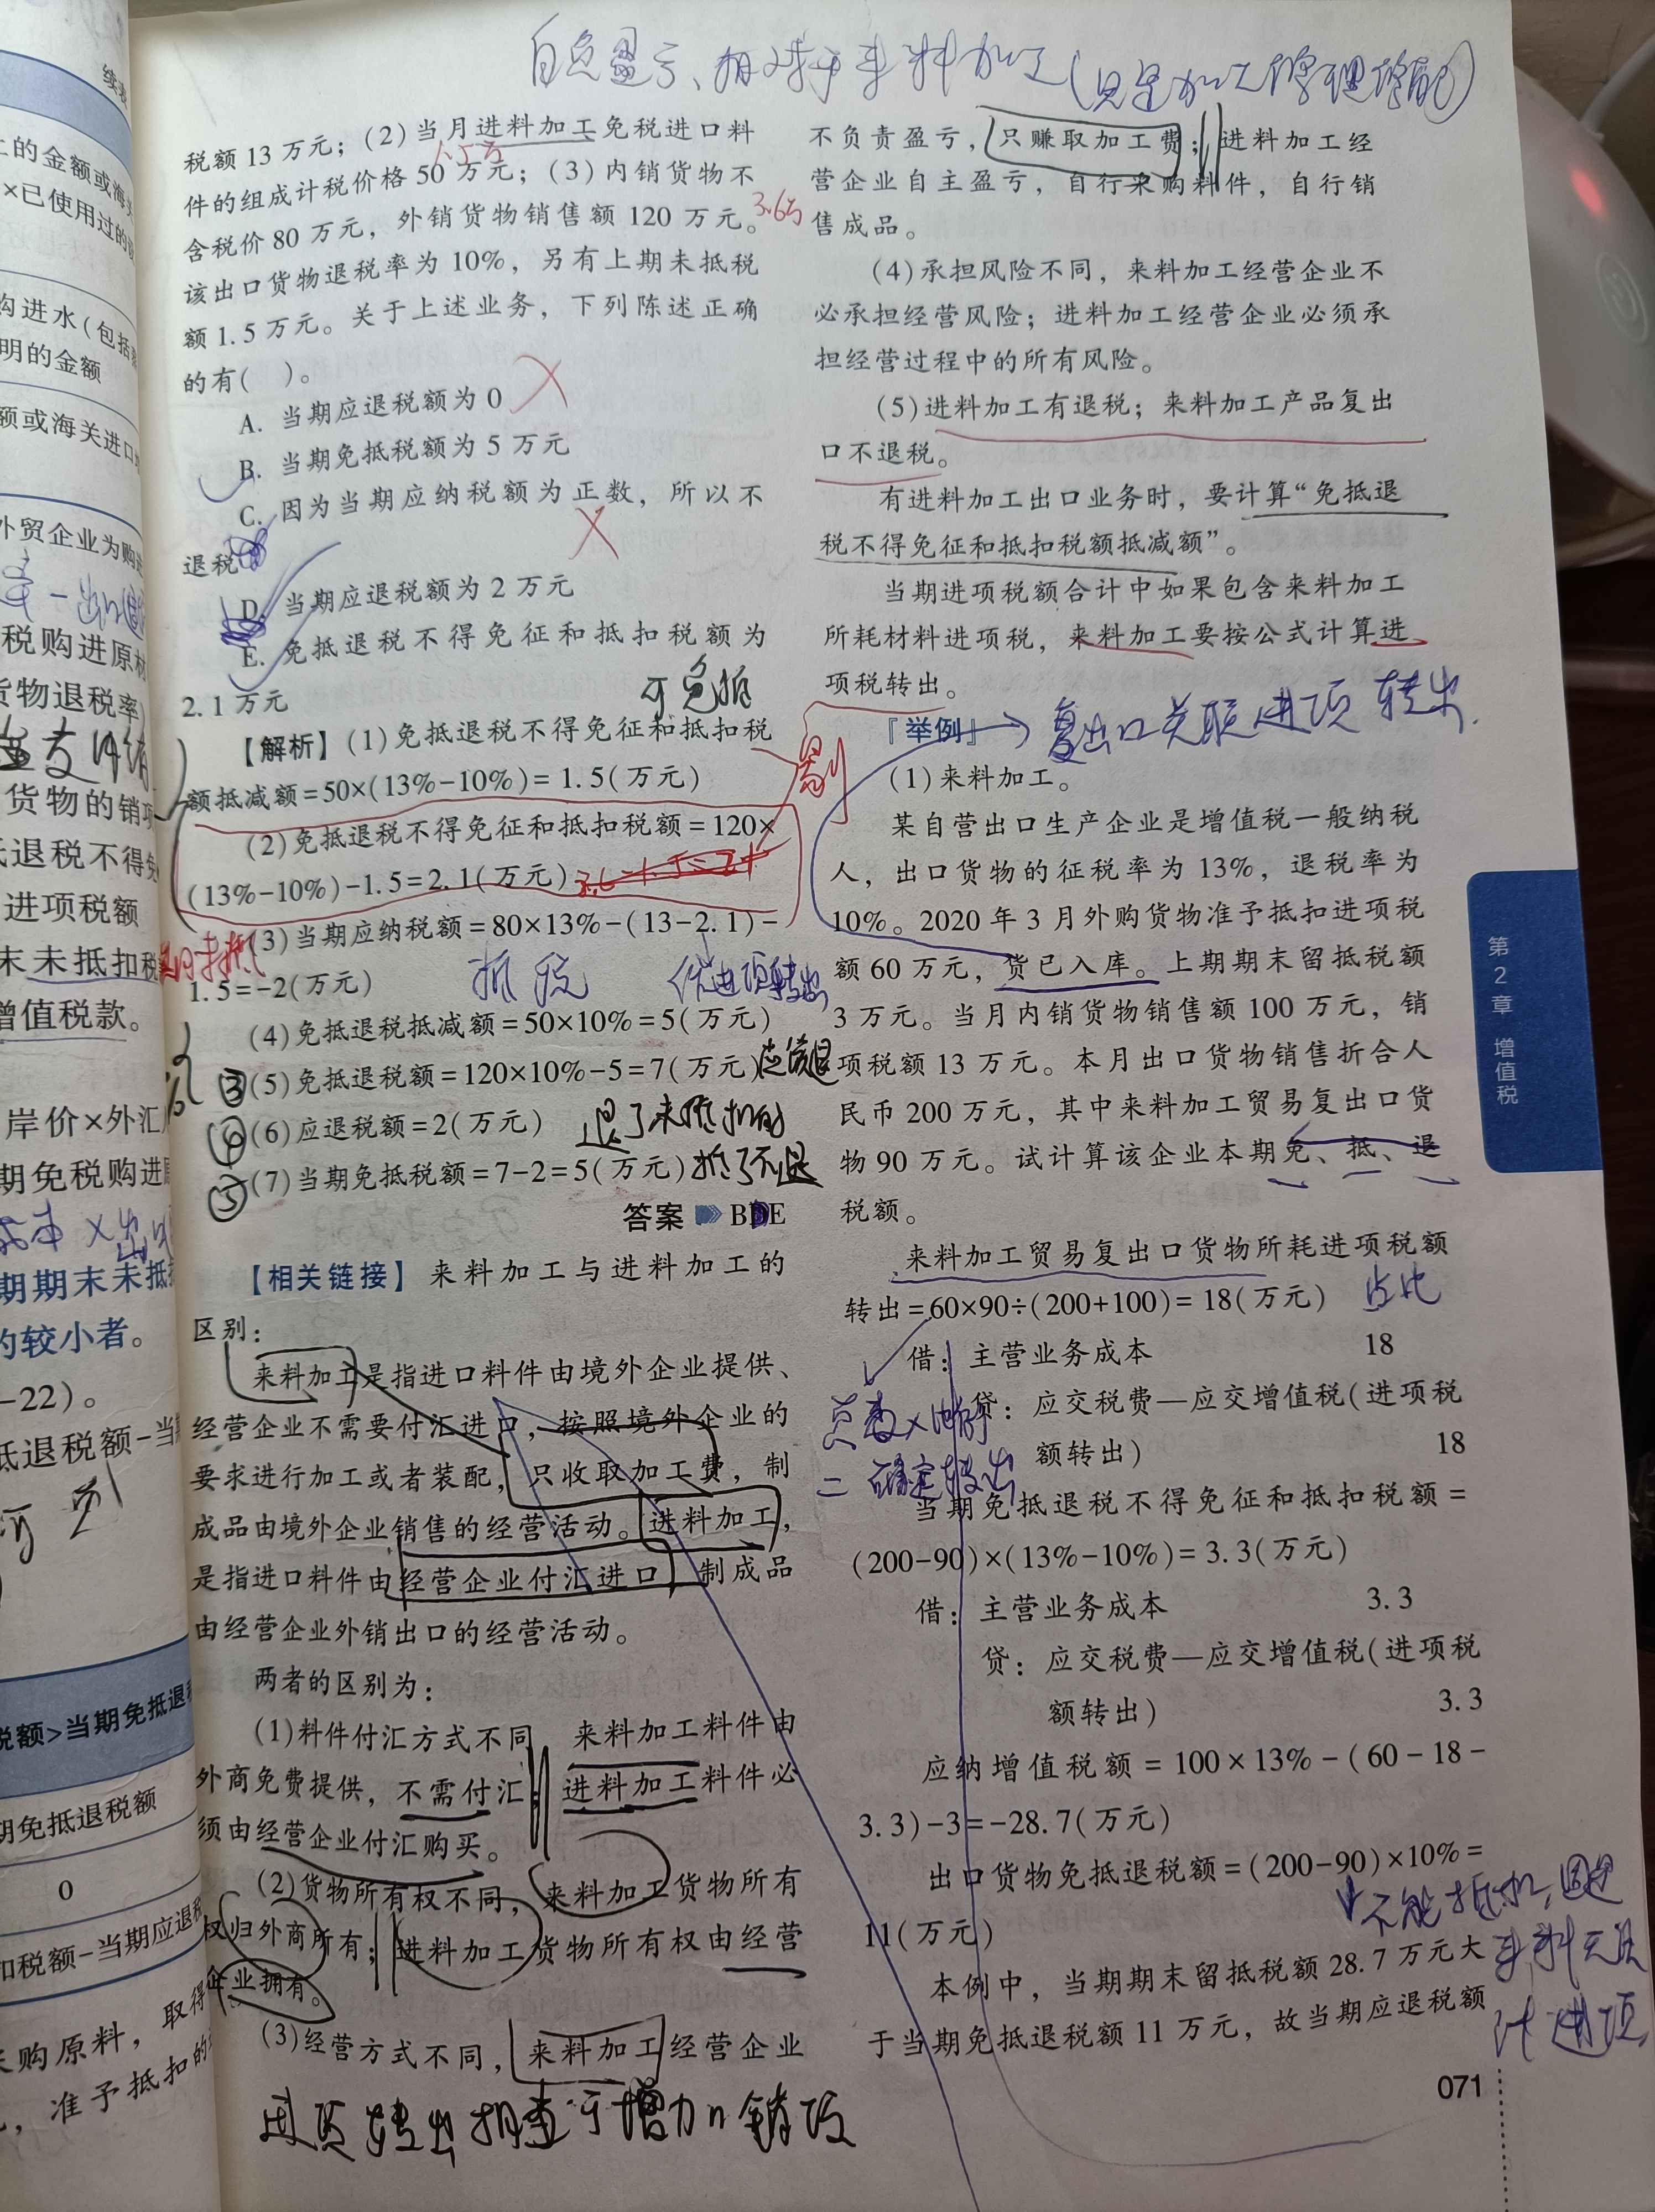 续表
上的金额或海关
×已使用过的设
购进水(包括
明的金额
额或海关进口
外贸企业为购进
税购进原材
货物退税率)
货物的销项
抵退税不得免
进项税额
末未抵扣税
增值税款。
岸价×外汇
期免税购进原
期期末未抵
的较小者。
-22)。
抵退税额-当
税额>当期免抵退
期免抵退税额
0
扣税额-当期应退税
采购原料,取得
,准予抵扣的
自负盈亏、相对于来料加工(只是加工修理修配)
税额 13 万元;(2)当月进料加工免税进口料
1.5万
件的组成计税价格 50 万元;(3)内销货物不
含税价 80 万元,外销货物销售额 120 万元。
3.6万
该出口货物退税率为 10%,另有上期未抵税
额 1.5 万元。关于上述业务,下列陈述正确
的有( )。
A. 当期应退税额为 0
B. 当期免抵税额为 5 万元
C. 因为当期应纳税额为正数,所以不
退税
D. 当期应退税额为 2 万元
E. 免抵退税不得免征和抵扣税额为
2.1 万元
可免抵
【解析】(1)免抵退税不得免征和抵扣税
额抵减额=50×(13%-10%)=1.5(万元)
剔
(2)免抵退税不得免征和抵扣税额=120×
(13%-10%)-1.5=2.1(万元)
(3)当期应纳税额=80×13%-(13-2.1)-
1.5=-2(万元)
抵 税
作进项转出
(4)免抵退税抵减额=50×10%=5(万元)
③(5)免抵退税额=120×10%-5=7(万元)应该退
④(6)应退税额=2(万元) 退了未抵扣的
⑤(7)当期免抵税额=7-2=5(万元)抵了不退
答案 BDE
【相关链接】来料加工与进料加工的
区别:
来料加工是指进口料件由境外企业提供、
经营企业不需要付汇进口,按照境外企业的
要求进行加工或者装配,只收取加工费,制
成品由境外企业销售的经营活动。进料加工,
是指进口料件由经营企业付汇进口,制成品
由经营企业外销出口的经营活动。
两者的区别为:
(1)料件付汇方式不同,来料加工料件由
外商免费提供,不需付汇;进料加工料件必
须由经营企业付汇购买。
(2)货物所有权不同,来料加工货物所有
权归外商所有;进料加工货物所有权由经营
企业拥有。
(3)经营方式不同,来料加工经营企业
进项转出相当于增加n销项
不负责盈亏,只赚取加工费;进料加工经
营企业自主盈亏,自行采购料件,自行销
售成品。
(4)承担风险不同,来料加工经营企业不
必承担经营风险;进料加工经营企业必须承
担经营过程中的所有风险。
(5)进料加工有退税;来料加工产品复出
口不退税。
有进料加工出口业务时,要计算“免抵退
税不得免征和抵扣税额抵减额”。
当期进项税额合计中如果包含来料加工
所耗材料进项税,来料加工要按公式计算进
项税转出。
『举例』→ 复出口关联进项 转出.
(1)来料加工。
某自营出口生产企业是增值税一般纳税
人,出口货物的征税率为 13%,退税率为
10%。2020 年 3 月外购货物准予抵扣进项税
额 60 万元,货已入库。上期期末留抵税额
3 万元。当月内销货物销售额 100 万元,销
项税额 13 万元。本月出口货物销售折合人
民币 200 万元,其中来料加工贸易复出口货
物 90 万元。试计算该企业本期免、抵、退
税额。
来料加工贸易复出口货物所耗进项税额
转出=60×90÷(200+100)=18(万元) 占比
借:主营业务成本 18
贷:应交税费—应交增值税(进项税
额转出) 18
总数×比例
=确定转出
当期免抵退税不得免征和抵扣税额=
(200-90)×(13%-10%)=3.3(万元)
借:主营业务成本 3.3
贷:应交税费—应交增值税(进项税
额转出) 3.3
应纳增值税额=100×13%-(60-18-
3.3)-3=-28.7(万元)
出口货物免抵退税额=(200-90)×10%=
11(万元)
不能抵扣,因是
来料无员
计进项
本例中,当期期末留抵税额 28.7 万元大
于当期免抵退税额 11 万元,故当期应退税额
071
第2章 增值税